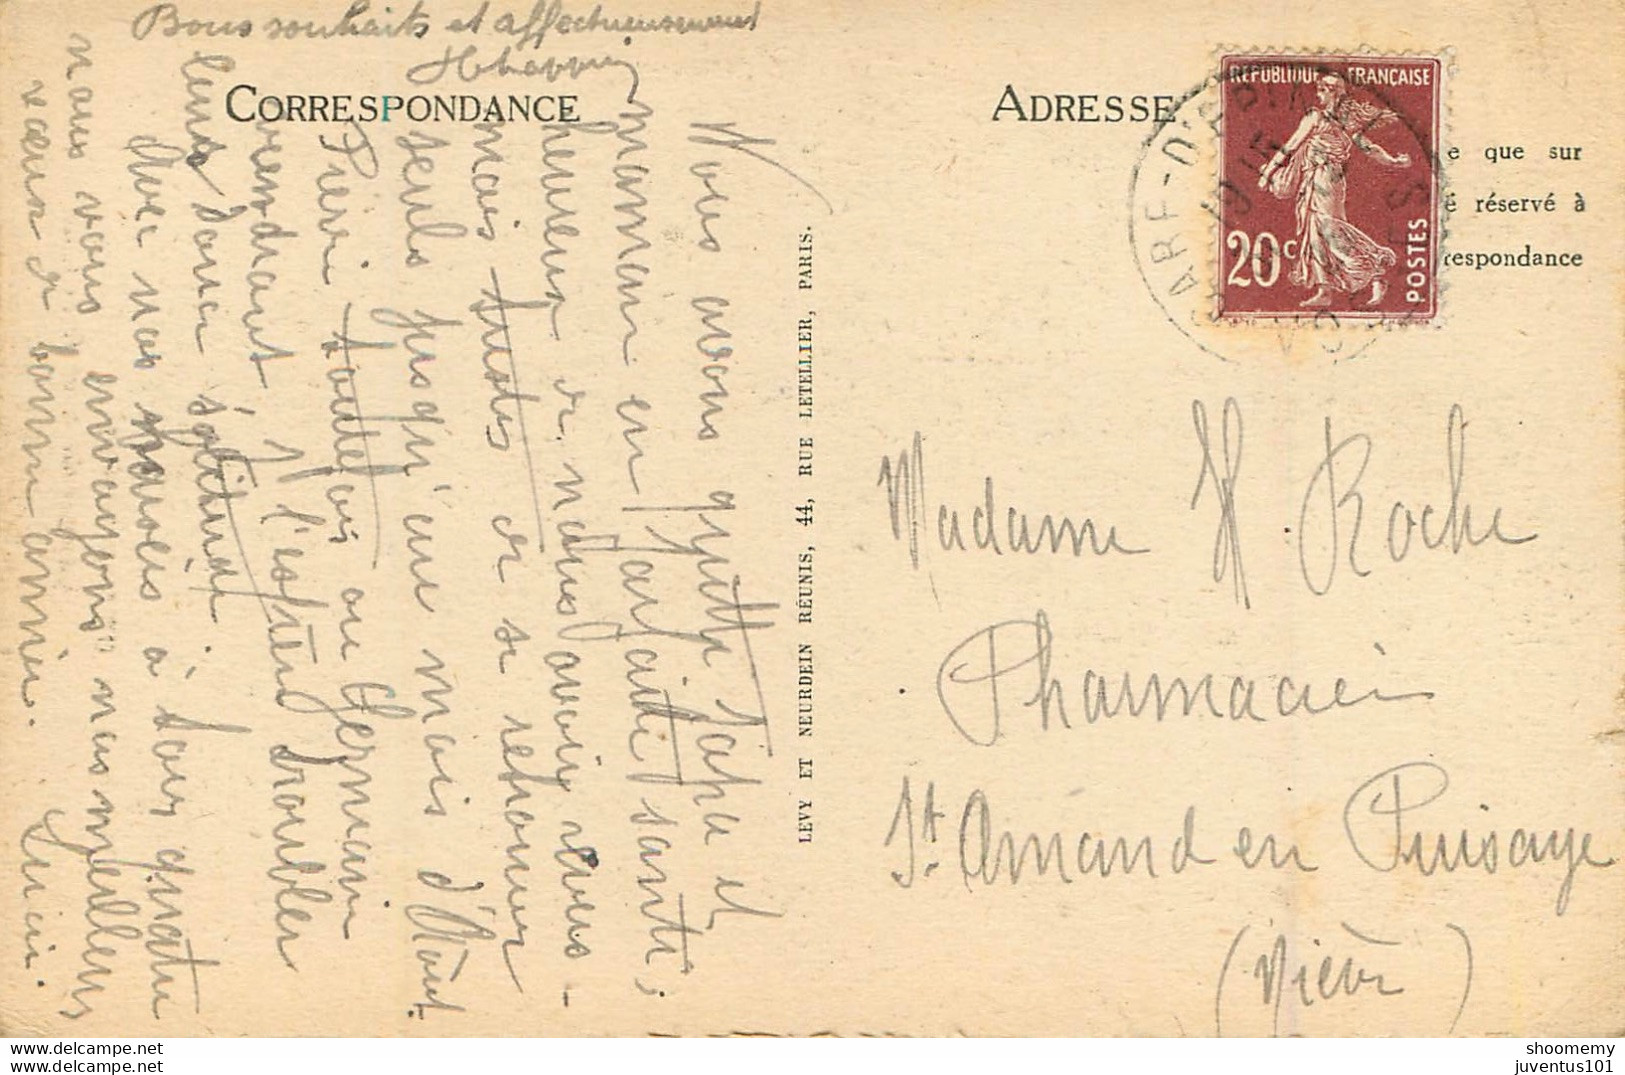 Bons souhaits et affectueusement
CORRESPONDANCE
Nous avons quitté papa et
maman en parfaite santé,
heureux de nous avoir eues
mais tristes de se retrouver
seuls jusqu'au mois d'Août.
Pierre toutefois ou Germain
viendront j'espère troubler
leur douce solitude.
Avec nos pensées à tous quatre
nous vous envoyons nos meilleurs
vœux de bonne année. Lucien.
LEVY ET NEURDEIN RÉUNIS, 44, RUE LETELLIER, PARIS.
ADRESSE
e que sur
é réservé à
respondance
RÉPUBLIQUE FRANÇAISE
20c
POSTES
Madame H. Roche
Pharmacien
St. Amand en Puisaye
(Nièvre)
shoomemy
juventus101